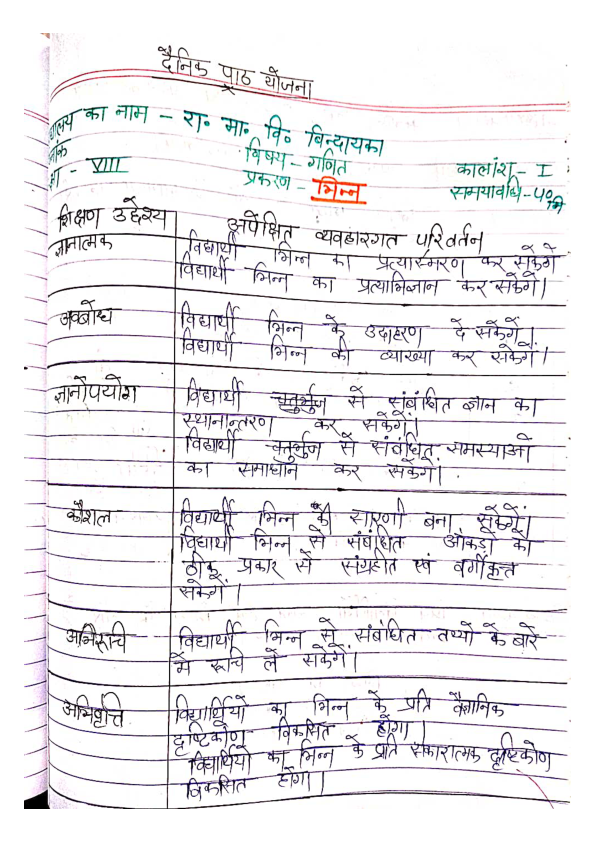 दैनिक पाठ योजना
द्यालय का नाम - रा० मा० वि० बिन्दायका
नांक
षा - VIII
विषय - गणित
प्रकरण - भिन्न
कालांश - I
समयावधि - ५० मि
शिक्षण उद्देश्य
अपेक्षित व्यवहारगत परिवर्तन
ज्ञानात्मक
विद्यार्थी भिन्न का प्रत्यास्मरण कर सकेंगे
विद्यार्थी भिन्न का प्रत्याभिज्ञान कर सकेंगे।
अवबोध
विद्यार्थी भिन्न के उदाहरण दे सकेंगे।
विद्यार्थी भिन्न की व्याख्या कर सकेंगे।
ज्ञानोपयोग
विद्यार्थी चतुर्भुज से संबंधित ज्ञान का
स्थानान्तरण कर सकेंगे।
विद्यार्थी चतुर्भुज से संबंधित समस्याओं
का समाधान कर सकेंगे।
कौशल
विद्यार्थी भिन्न की सारणी बना सकेंगे।
विद्यार्थी भिन्न से संबंधित आंकड़ो को
ठीक प्रकार से संग्रहीत एवं वर्गीकृत
सकेगें।
अभिरूचि
विद्यार्थी भिन्न से संबंधित तथ्यों के बारे
में रूचि ले सकेंगे।
अभिवृत्ति
विद्यार्थियों का भिन्न के प्रति वैज्ञानिक
दृष्टिकोण विकसित होगा।
विद्यार्थियों का भिन्न के प्रति सकारात्मक दृष्टिकोण
विकसित होगा।